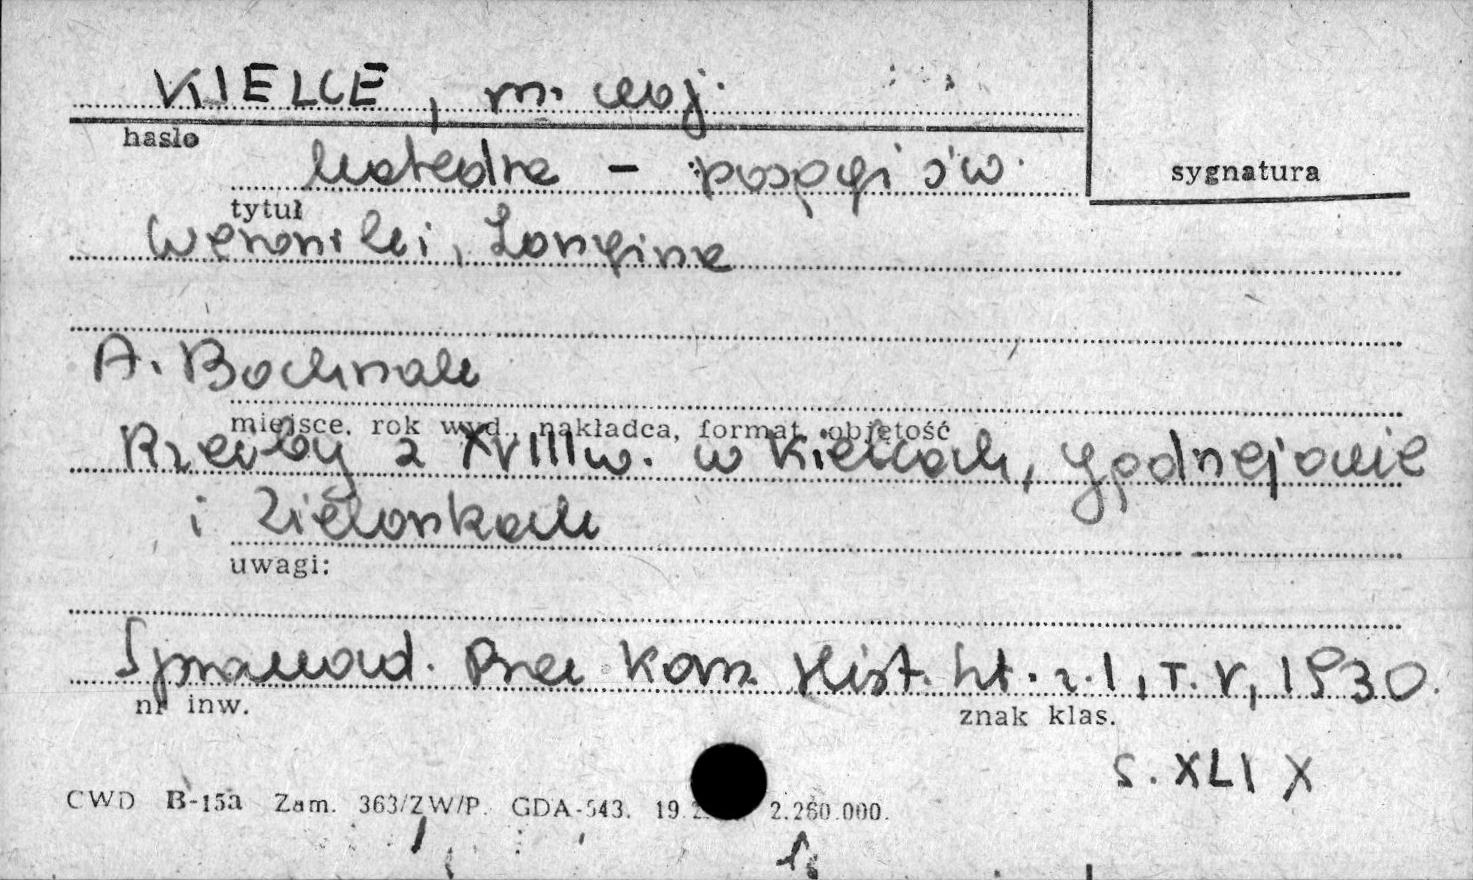 KIELCE, m. woj.
hasło
Katedra - posągi św.
sygnatura
tytuł
Weroniki, Longina
A. Bochnak
miejsce, rok wyd., nakładca, format, objętość
Rzeźby z XVIII w. w Kielcach, Jędrzejowie
i Zielonkach
uwagi:
Sprawozd. Prac Kom. Hist. Szt. z. 1, T. V, 1930.
nr inw.
znak klas.
S. XLIX
CWD B-15a Zam. 363/ZW/P. GDA-543. 19. 2.260.000.